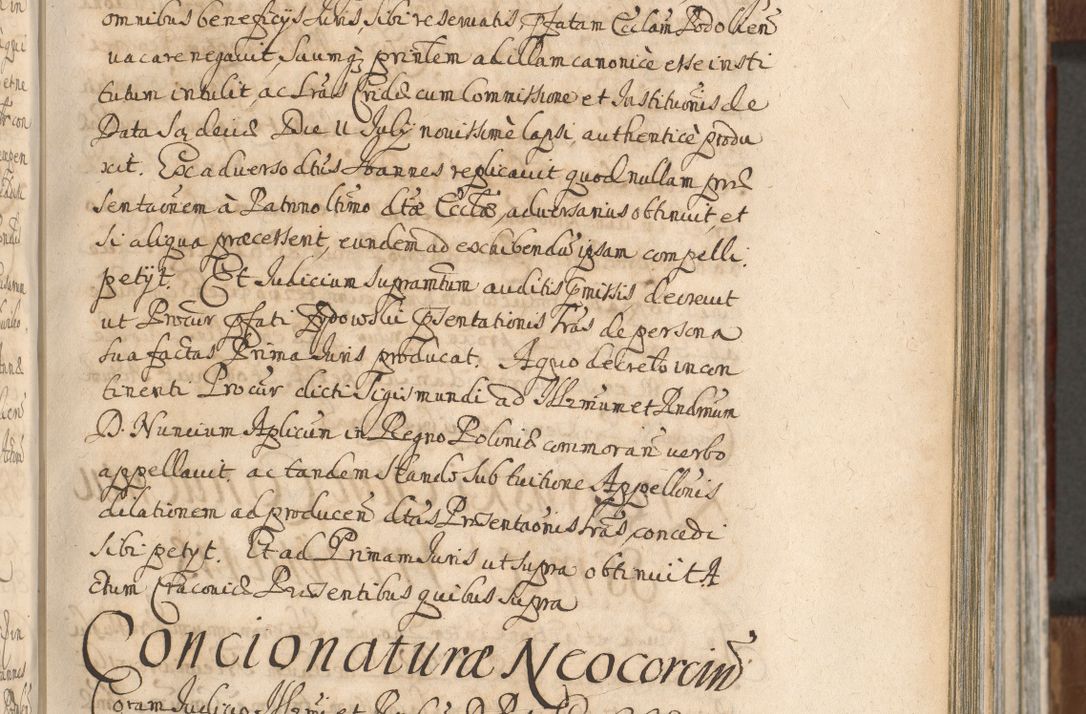 omnibus beneficijs Iuris, sibi reservatis pfatam Ecclam Podolien̄
vacare negavit, suumq; prin̄tem ad illam canonicè esse insti
tutum intulit, ac Lrās Crid& cum Commissione et Institutio͞nis de
Data Die 11 Julij novissimè lapsi, authenticè produ
xit. Ex adverso dtus Ioannes replicavit quod nullam prae
sentaōnem à Patrono ltimo dtæ Ecclæ, adversarius obtinuit, et
si aliqua præcessent, eundem ad exhibendū ipsam compelli
petijt. Et Iudicium supramtum auditis pmissis decrevit
ut Procur pfati Zydowskii psentationis lrās de persona
sua factas Prima Iuris producat. A quo decreto incon
tinenti Procur dicti Sigismundi ad Illrmum et Rndmum
D. Nuncium Aplicum in Regno Poloniæ commoran̄ verbo
appellavit, ac tandem stando sub tuitione Appellōnis
dilationem ad producen̄ dtas Præsentaōnis lrās concedi
sibi petyt. Et ad Primam Iuris ut supra obtinuit A
ctum Cracoviæ Præsentibus quibus supra
Concionaturæ Neocorcin̄
Coram Iudicio Illrmi et